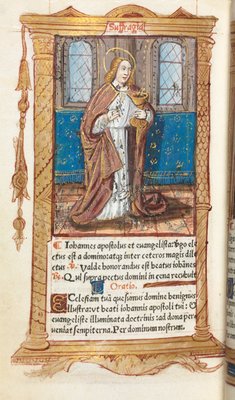 Suffragia
Iohannes apostolus et euangelista virgo ele
ctus est a domino atq; inter ceteros magis dile
ctus. V. Valde honorandus est beatus iohānes
R. Qui supra pectus domini in cena recubuit
Oratio.
Ecclesiam tuā quesumus domine benignus
illustra: vt beati iohannis apostoli tui: &
euangeliste illuminata doctrinis: ad dona per
ueniat sempiterna. Per dominum nostrum.